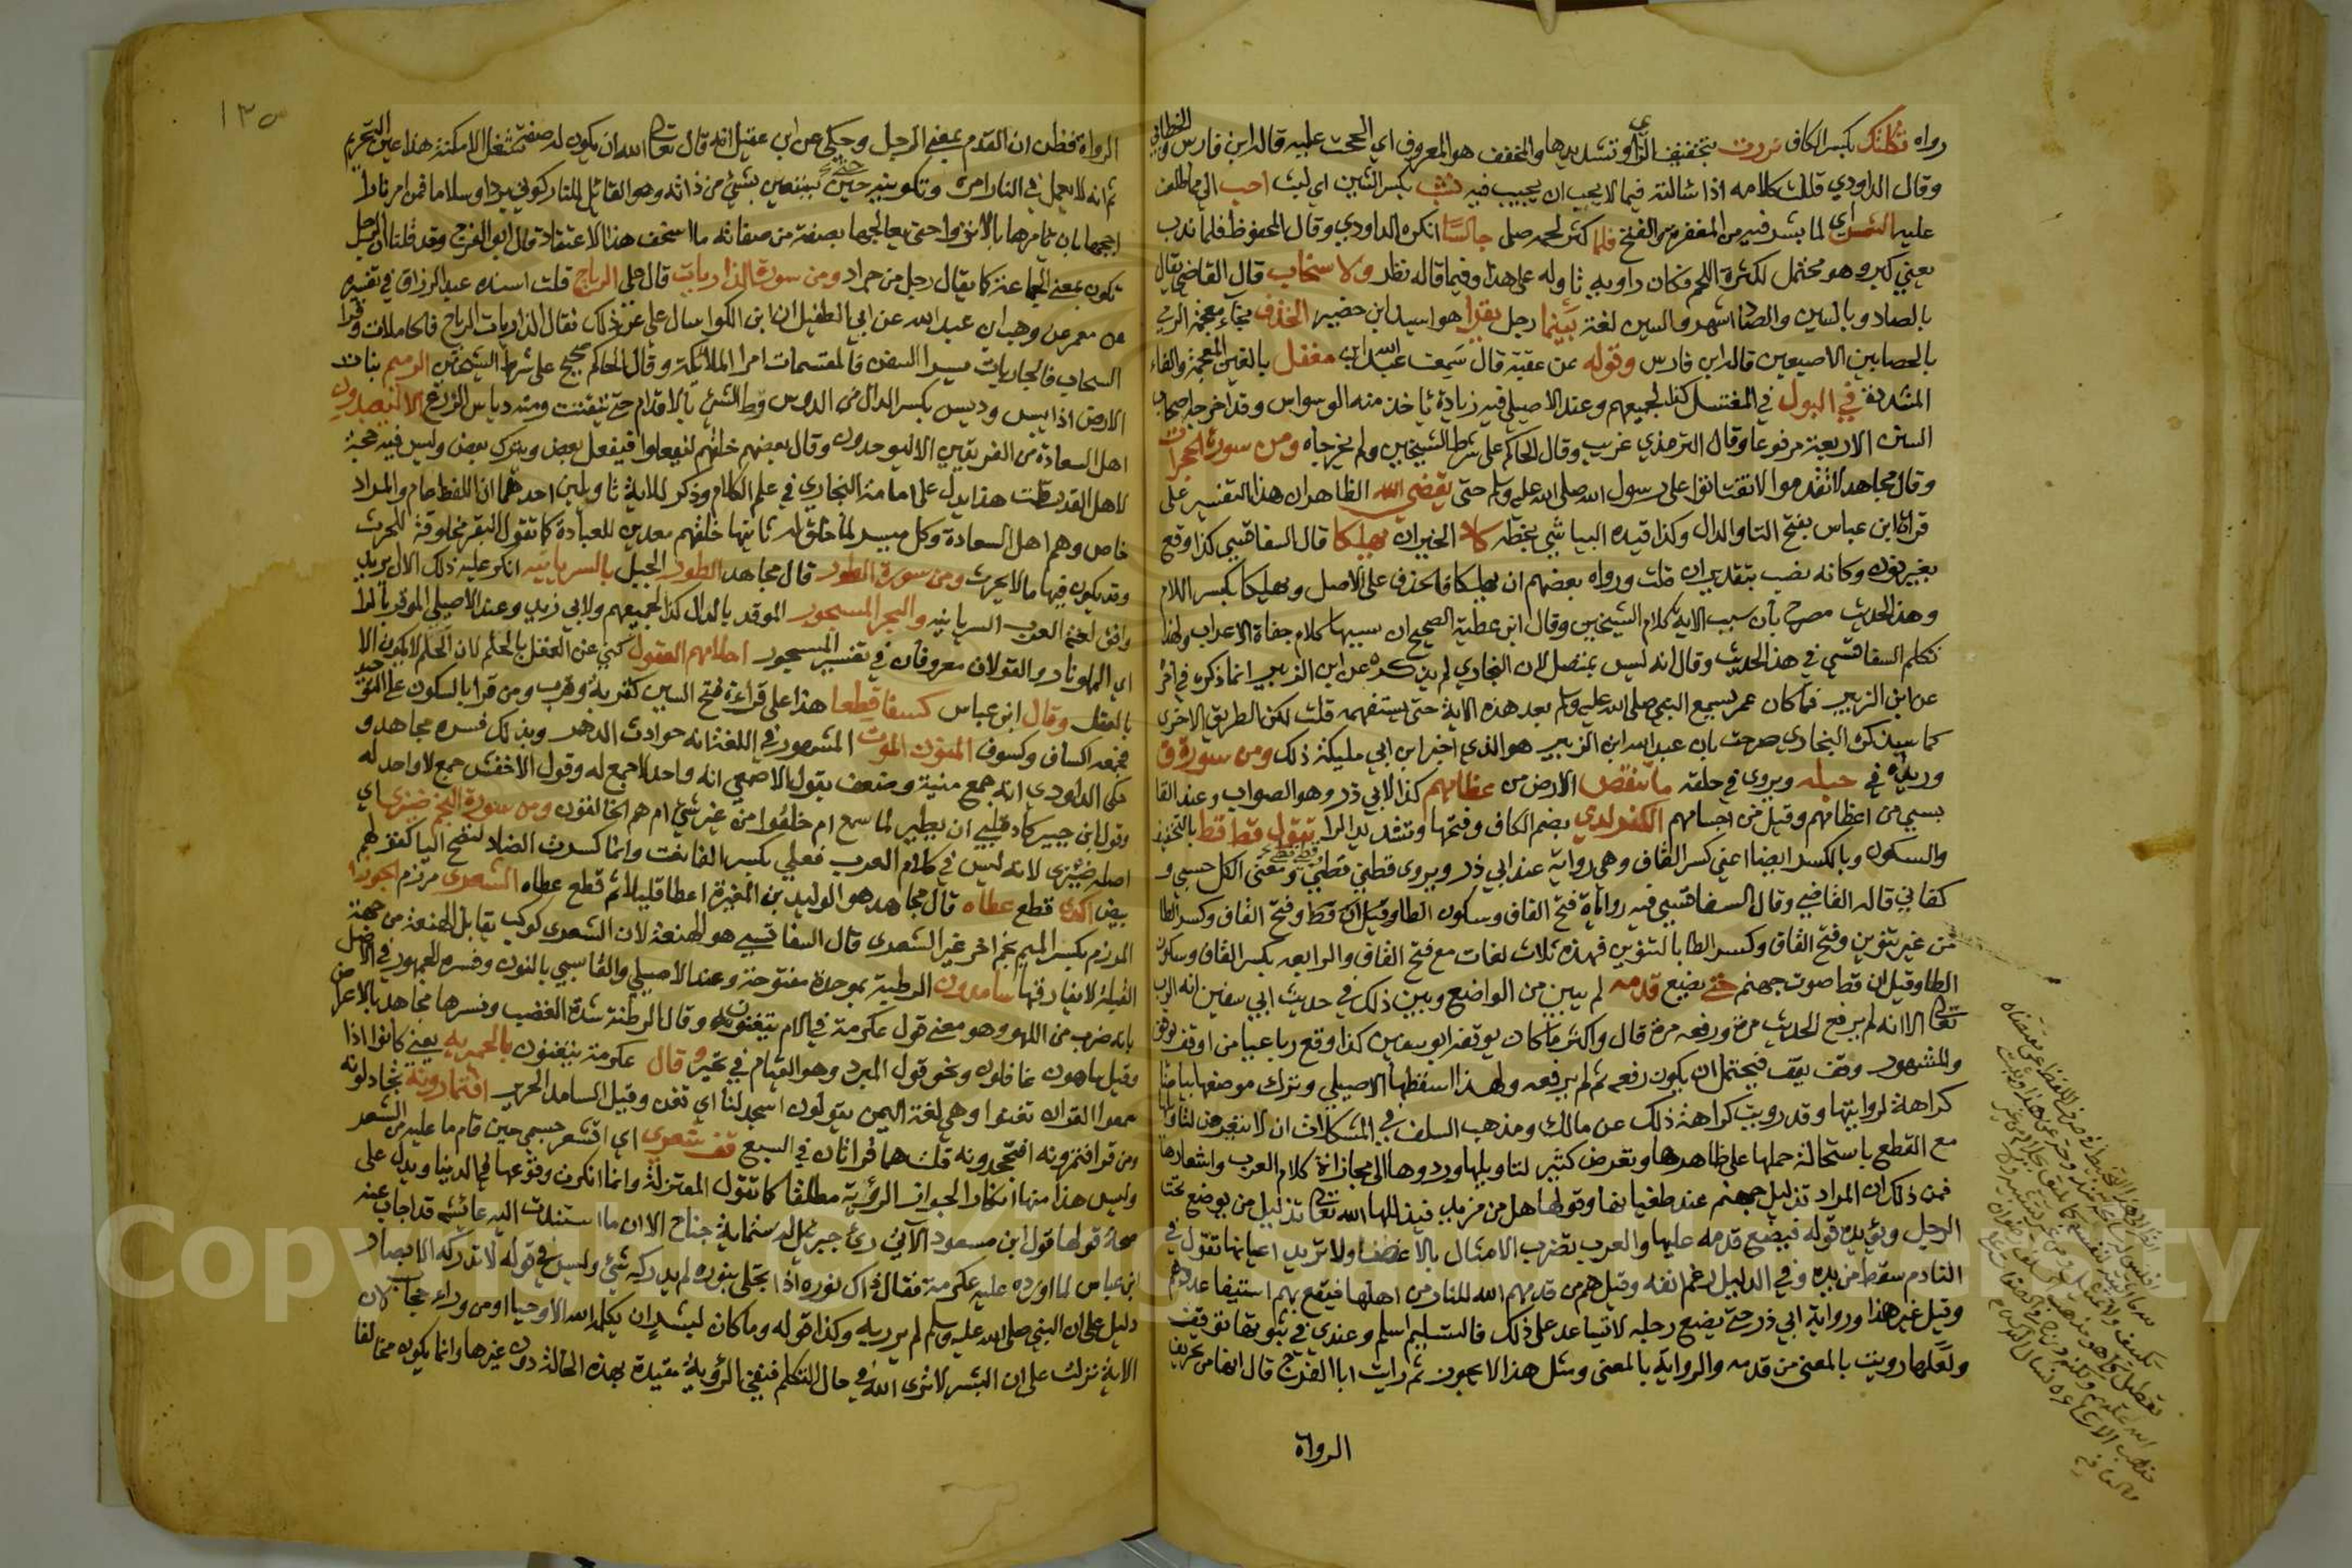 رواه ثكلتك بكسر الكاف نزرت بتخفيف الزاي وتشديدها والمخفف هو المعروف اي الححت عليه قاله ابن فارس والخطابي
وقال الداودي قللت كلامه اذا سالته فيما لا يجب ان يجيب فيه نشب بكسر الشين اي لبث احب الي مما طلعت
عليه الشمس اي لما بشر فيه من المغفرة والفتح فلما كثر لحمه صلى جالسا انكره الداودي وقال المحفوظ فلما بدن
يعني كبر وهو محتمل لكثرة اللحم فكان راويه تاوله على هذا وفيما قاله نظر ولا سخاب قال القاضي يقال
بالصاد وبالسين والصاد اشهر والسين لغة بينما رجل يقرا هو اسيد ابن حضير الخذف بخاء معجمة الرمي
بالحصا بين الاصبعين قاله ابن فارس وقوله عن عقبة قال سمعت عبد الله ابن مغفل بالغين المعجمة والفاء
المشددة في البول في المغتسل كذا لجميعهم وعند الاصيلي فيه زيادة ياخذ منه الوسواس وقد اخرجه اصحاب
السنن الاربعة مرفوعا وقال الترمذي غريب وقال الحاكم على شرط الشيخين ولم يخرجاه ومن سورة الحجرات
وقال مجاهد لا تقدموا لا تفتاتوا على رسول الله صلى الله عليه وسلم حتى يقضي الله الظاهر ان هذا التفسير على
قراة ابن عباس بفتح التا والدال وكذا قيده البياسي بخطه كاد الخيران يهلكا قال السفاقسي كذا وقع
بغير نون وكانه نصب بتقدير ان قلت ورواه بعضهم ان يهلكا فالحذف على الاصل ويهلكا بكسر اللام
وهذا الحديث مصرح بان سبب الاية كلام الشيخين وقال ابن عطية الصحيح ان سببها كلام جفاة الاعراب ولهذا
تكلم السفاقسي في هذا الحديث وقال انه ليس بمتصل لان البخاري لم يذكره عن ابن الزبير انما ذكره في اخره
عن ابن الزبير فما كان عمر يسمع النبي صلى الله عليه وسلم بعد هذه الاية حتى يستفهمه قلت لكن الطريق الاخرى
كما سيذكره البخاري صرحت بان عبد الله ابن الزبير هو الذي اخبر ابن ابي مليكة ذلك ومن سورة ق
وريداه في حبله ويروى في حلقه ما تنقص الارض من عظامهم كذا لابي ذر وهو الصواب وعند القا
بسي من اعظامهم وقيل من اجسامهم الكفرى بضم الكاف وفتحها وتشديد الرا تقول قط قط بالتخفيف
والسكون وبالكسر ايضا اعني كسر القاف وهي رواية عند ابي ذر ويروى قطني قطني ومعنى الكل حسبي و
كفاني قاله القاضي وقال السفاقسي فيه رواية فتح القاف وسكون الطا وقيل قط وفتح القاف وكسر الطا
من غير تنوين وفتح القاف وكسر الطا بالتنوين فهذه ثلاث لغات مع فتح القاف والرابعة بكسر القاف وسكون
الطا وقيل ان قط صوت جهنم حتى يضع قدمه لم يبين من الواضع وبين ذلك في حديث ابي سفين انه الرب
تعالى الا انه لم يرفع الحديث مرة ورفعه مرة قال واكثر ما كان يوقفه ابو سفين كذا وقع رباعيا من اوقف
والمشهور وقف يقف فيحتمل ان يكون رفعه ثم لم يرفعه ولهذا اسقطها الاصيلي وترك موضعها بياضا
كراهة لروايتها وقد رويت كراهة ذلك عن مالك ومذهب السلف في المشكلات ان لا نتعرض لتاويلها
مع القطع باستحالة حملها على ظاهرها وتعرض كثير لتاويلها وردوها الى مجازات كلام العرب واشعارها
فمن ذلك ان المراد تذليل جهنم عند طغيانها وقولها هل من مزيد فيذلها الله تعالى تذليل من يوضع تحت
الرجل ويؤيده قوله فيضع قدمه عليها والعرب تضرب الامثال بالاعضا ولا تريد اعيانها تقول في
النادم سقط من يده وفي الذليل رغم انفه وقيل هم من قدمهم الله للنار من اهلها فيقع بهم استيفا عددهم
وقيل غير هذا ورواية ابي ذر حتى يضع رجله لا تساعد على ذلك فالتسليم اسلم وعندي في ثبوتها توقف
ولعلها رويت بالمعنى من قدمه والرواية بالمعنى ومثل هذا لا يجوز ثم رايت ابا الفرج قال انها من تحريف
الرواة
١٣٥
الرواة فظن ان القدم بمعنى الرجل وحكى عن ابن عقيل انه قال تعالى الله ان يكون له صفة تشغل الامكنة هذا عين التجزي
ثم انه لا يعمل في النار امره وتكوينه حتى يستعين بشيء من ذاته وهو القائل للنار كوني بردا وسلاما فمن امر نارا
اججها بان تامرها بالانزوا حتى يعالجها بصفة من صفاته ما اسخف هذا الاعتقاد قال ابو الفرج وقد قلنا ان الرجل
تكون بمعنى الجماعة كما يقال رجل من جراد ومن سورة الذاريات قال علي الرياح قلت اسنده عبد الرزاق في تفسيره
عن معمر عن وهب بن عبد الله عن ابي الطفيل ان ابن الكوا سال علي عن ذلك فقال الذاريات الرياح فالحاملات وقرا
السحاب فالجاريات يسرا السفن فالمقسمات امرا الملائكة وقال الحاكم صحيح على شرط الشيخين الرميم نبات
الارض اذا يبس وديس بكسر الدال من الدوس وطا الشيء بالاقدام حتى يتفتت ومنه دياس الزرع الا ليعبدون
اهل السعادة من الفريقين الا ليوحدون وقال بعضهم خلقهم ليفعلوا ففعل بعض وترك بعض وليس فيه حجة
لاهل القدر قلت هذا يدل على امامة البخاري في علم الكلام وذكر للاية تاويلين احدهما ان اللفظ عام والمراد
خاص وهم اهل السعادة وكل ميسر لما خلق له ثانيها خلقهم معدين للعبادة كما تقول البقر مخلوقة للحرث
وقد يكون فيها ما لا يحرث ومن سورة الطور قال مجاهد الطور الجبل بالسريانية انكر عليه ذلك الا ان يريد
وافق لغة العرب السريانية والبحر المسجور الموقد بالدال كذا لجميعهم ولابي زيد وعند الاصيلي الموقر بالرا
اي المملو نارا والقولان معروفان في تفسير المسجور احلامهم العقول كني عن العقل بالحلم لان الحلم لا يكون الا
بالعقل وقال ابن عباس كسفا قطعا هذا على قراءة فتح السين كقربة وقرب ومن قرا بالسكون على التوحيد
فجمعه اكساف وكسوف المنون الموت المشهور في اللغة انه حوادث الدهر وبذلك فسره مجاهد و
حكى الداودي انه جمع منية وضعف بقول الاصمعي انه واحد لا جمع له وقول الاخفش جمع لا واحد له
وقول ابن جبير كاد قلبي ان يطير لما سمع ام خلقوا من غير شيء ام هم الخالقون ومن سورة النجم ضيزى اي
اصله ضيزى لانه ليس في كلام العرب فعلى بكسر الفا نعت وانما كسرت الضاد لتصح اليا كقولهم
بيض اكدى قطع عطاه قال مجاهد هو الوليد بن المغيرة اعطا قليلا ثم قطع عطاه الشعرى مرزم الجوزا
المرزم بكسر الميم نجم اخر غير الشعرى قال السفاقسي هو الهنعة لان الشعرى كوكب يقابل الهنعة من جهة
القبلة لا يفارقها سامدون البرطمة بموحدة مفتوحة وعند الاصيلي والقابسي بالنون وفسره الجمهور في الاصل
بانه ضرب من اللهو وهو معنى قول عكرمة في الام يتغنون وقال البرطنة شدة الغضب وفسرها مجاهد بالاعراض
وقيل ساهون غافلون ونحو قول المبرد وهو القيام في تحير وقال عكرمة يتغنون بالحميرية يعني كانوا اذا
سمعوا القران تغنوا وهي لغة اليمن يقولون اسمد لنا اي تغن وقيل السامد الحزين افتمارونه تجادلونه
ومن قرا افتمرونه افتجحدونه قلت هما قراتان في السبع قف شعري اي اقشعر جسمي حين قام ما عليه من الشعر
وليس هذا منها انكارا لجواز الرؤية مطلقا كما تقول المعتزلة وانما انكرت وقوعها في الدنيا ويدل على
صحة قولها قول ابن مسعود الآتي رأى جبريل له ستماية جناح الا ان ما استندت اليه عائشة قد اجاب عنه
ابن عباس لما اورده عليه عكرمة فقال ذاك نوره اذا تجلى بنوره لم يدركه شيء وليس في قوله لا تدركه الابصار
دليل على ان النبي صلى الله عليه وسلم لم ير ربه وكذا قوله وما كان لبشر ان يكلمه الله الا وحيا او من وراء حجاب لان
الاية نزلت على ان البشر لا ترى الله في حال التكلم فنفي الرؤية مقيدة بهذه الحالة دون غيرها وانما يكون مخالفا
Copyright © King Saud University